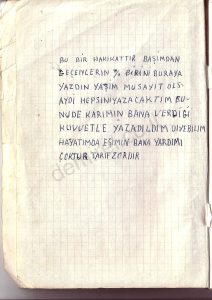 BU BİR HAKİKATTIR BAŞIMDAN
GEÇENLERİN % BİRİNİ BURAYA
YAZDIN YAŞIM MUSAYİT OLS
AYDI HEPSİNİ YAZACAKTIM BU-
NUDE KARIMIN BANA VERDİĞİ
KUVVETLE YAZADİLDİM DİYEBİLİM
HAYATIMDA EŞİMİN BANA YARDIMI
ÇOKTUR TARİFZORDIR